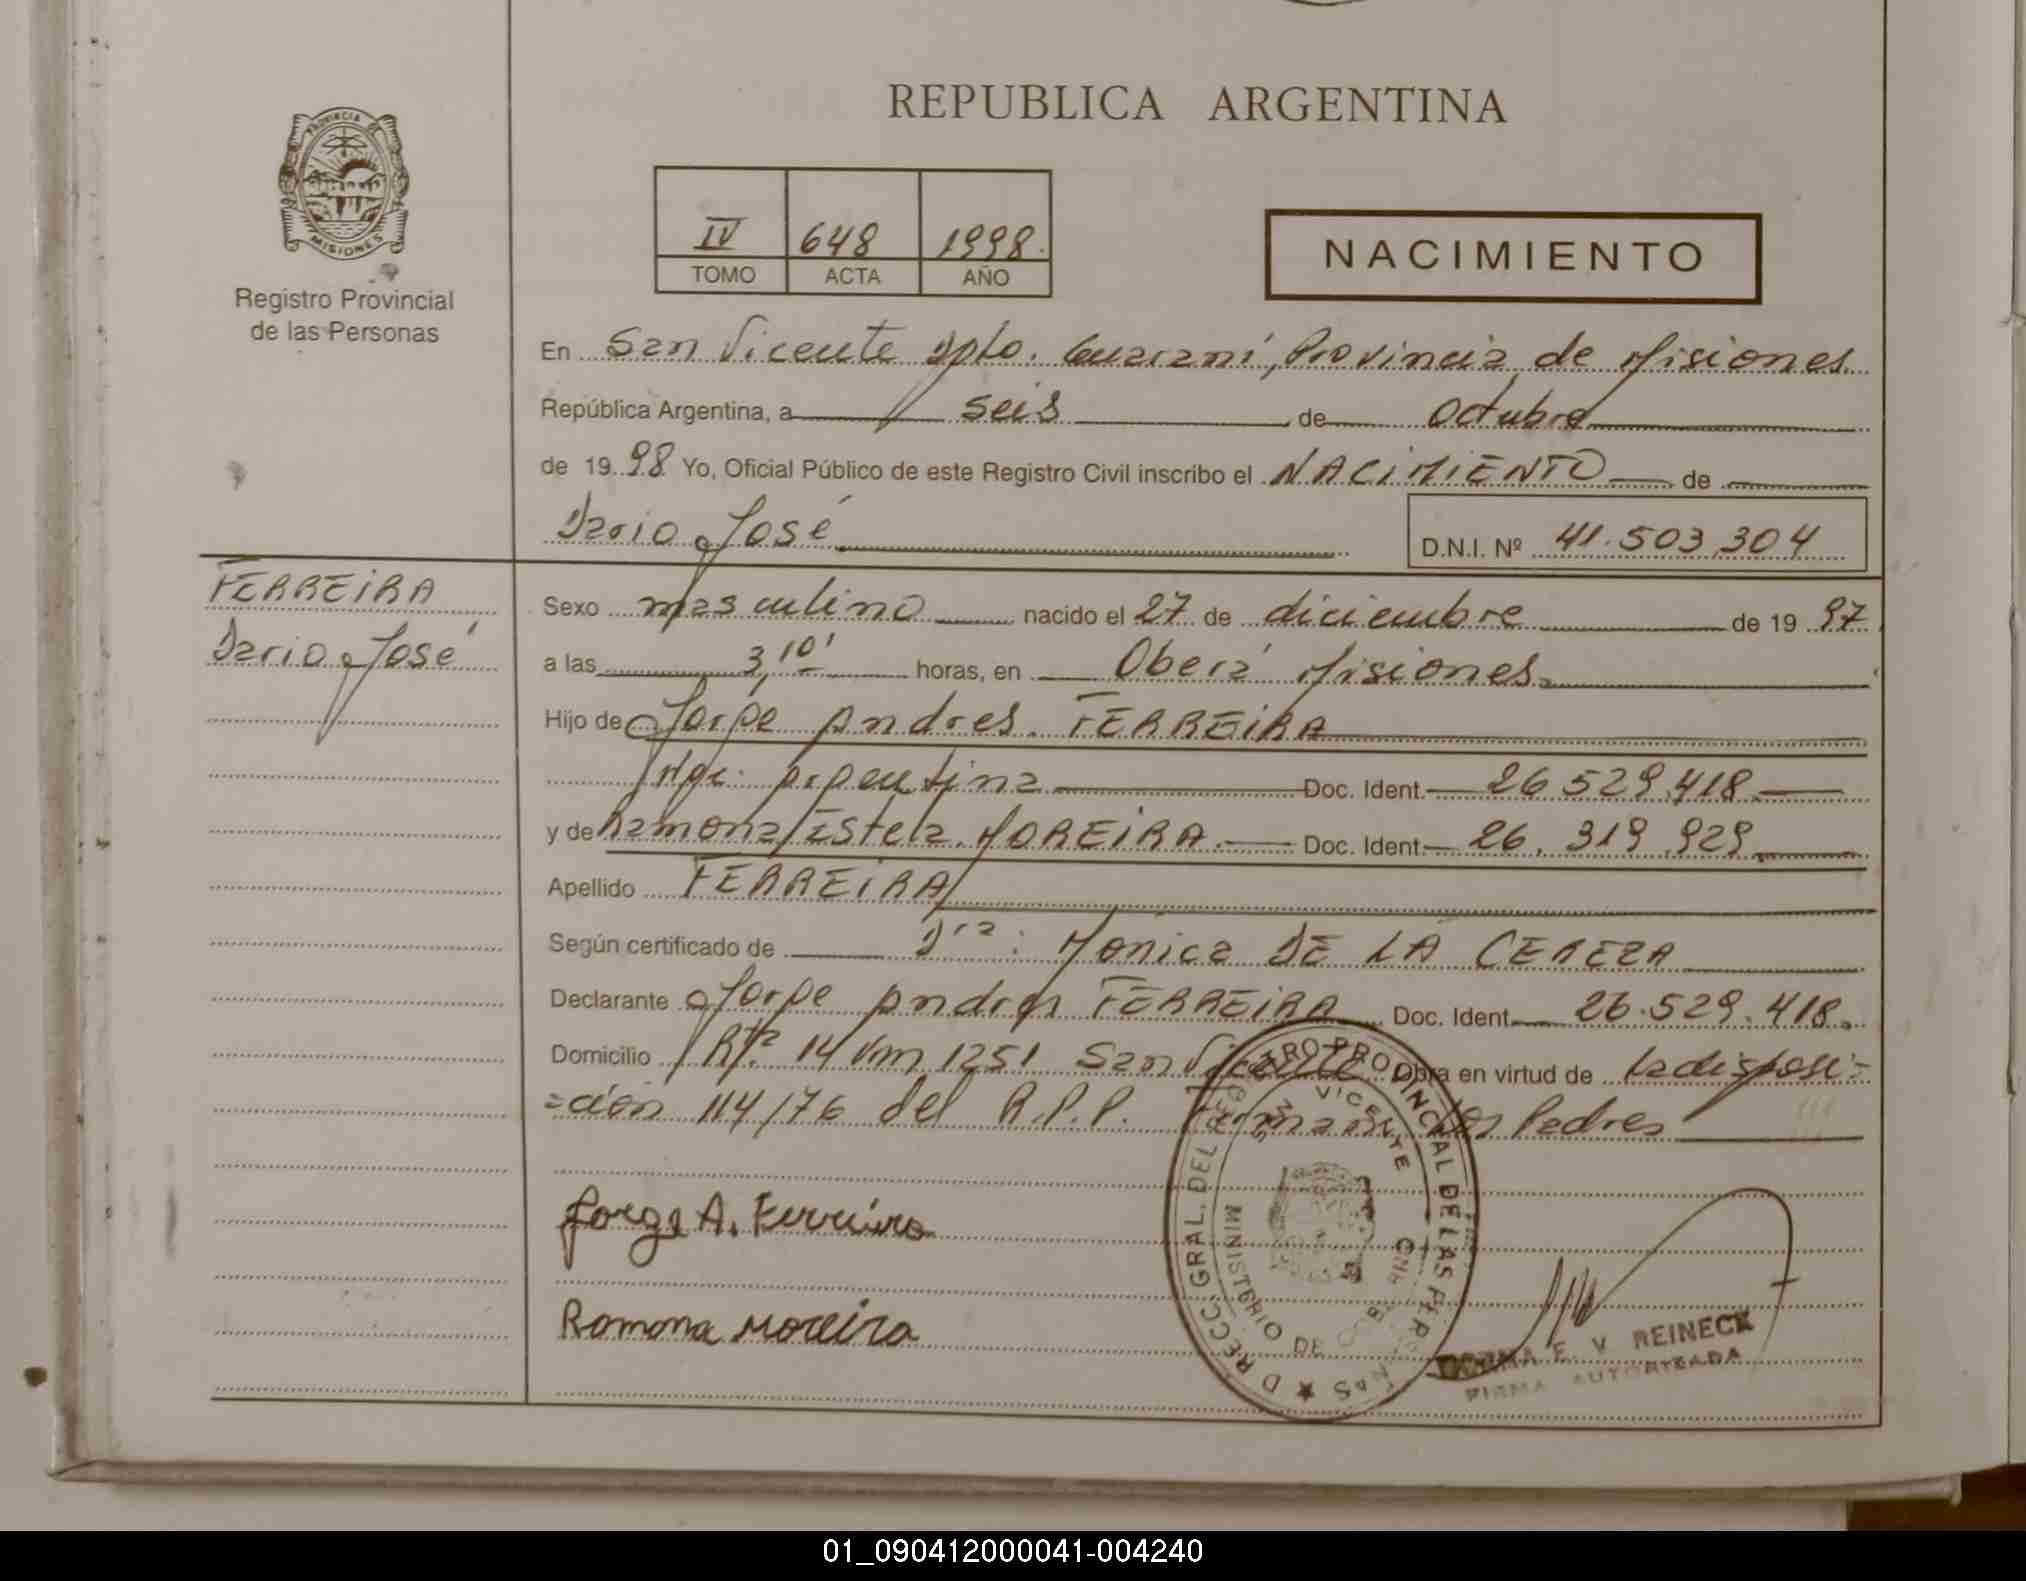 REPUBLICA ARGENTINA
PROVINCIA DE
MISIONES
Registro Provincial
de las Personas
IV 648 1998.
TOMO ACTA AÑO
NACIMIENTO
En San Vicente Dpto. Guaraní, Provincia de Misiones
República Argentina, a seis de Octubre
de 1998 Yo, Oficial Público de este Registro Civil inscribo el NACIMIENTO de
Dario José
D.N.I. Nº 41.503.304
FERREIRA
Dario José
Sexo masculino nacido el 27 de diciembre de 1997
a las 3,10' horas, en Oberá Misiones.
Hijo de Jorge Andres FERREIRA
Argentina Doc. Ident. 26.529.418
y de Ramona Estela MOREIRA. Doc. Ident. 26.319.929
Apellido FERREIRA
Según certificado de Dra: Monica DE LA
Declarante Jorge Andres FERREIRA Doc. Ident. 26.529.418.
Domicilio Rta 14 Km 1251 San Vicente Obra en virtud de la disposi=
=ción 114/76 del R.P.P. Firman los Padres
Jorge A. Ferreira
Ramona Moreira
DIRECC. GRAL. DEL REGISTRO PROVINCIAL DE LAS PERSONAS
MINISTERIO DE
VICENTE
E. V. REINECK
FIRMA AUTORIZADA
01_090412000041-004240